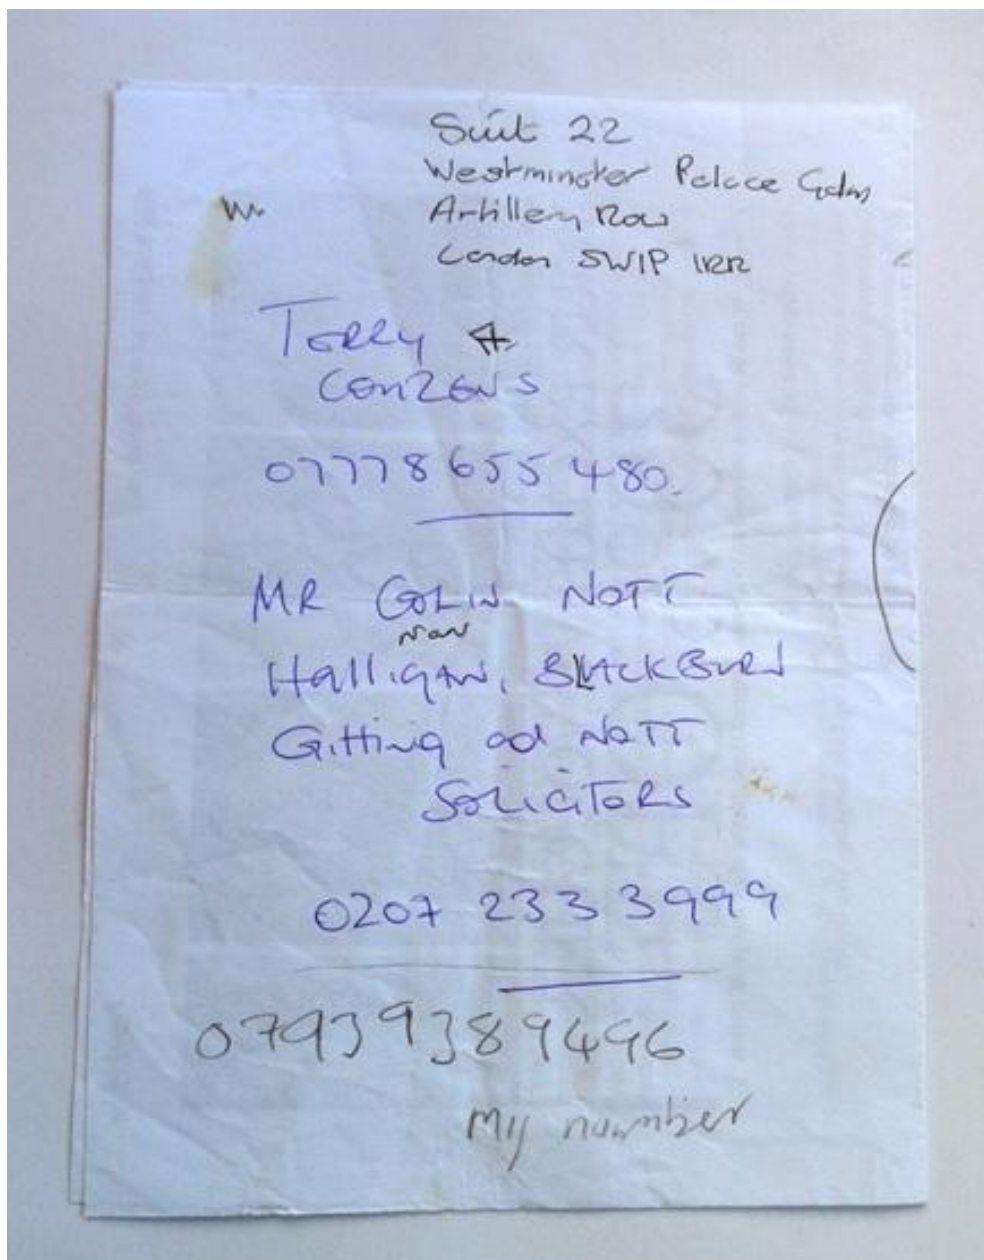 Suit 22
Westminster Palace Gdns
Artillery Row
London SW1P 1RR
Terry A
COUZENS
07778 655 480.
MR COLIN NOTT
now
Halligan, BLACKBURN
Gitting and NOTT
SOLICITORS
0207 233 3999
07939389496
My number